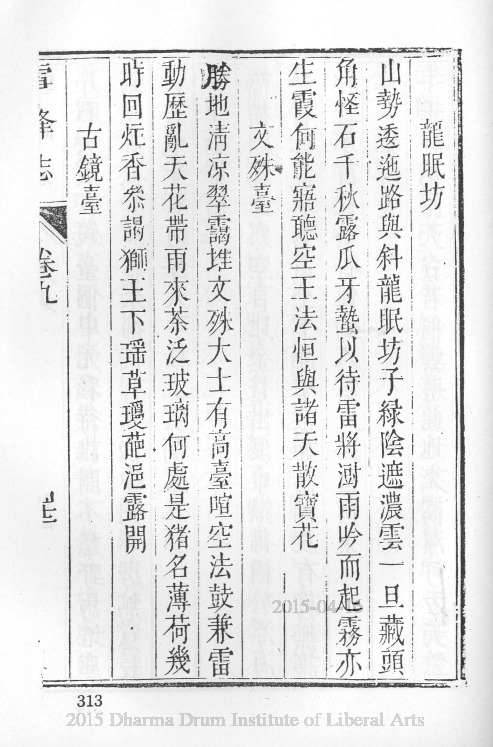 龍眠坊
山勢透迤路與斜龍眠坊子綠陰遮濃雲一旦藏頭
角怪石千秋露瓜牙蟄以待雷將澍雨吟而起霧亦
生霞何能寤聽空王法恒與諸天散寶花
文殊臺
勝地清凉翠靄堆文殊大士有高臺喧空法鼓兼雷
動歷亂天花帶雨來茶泛玻璃何處是猪名薄荷幾
時回炷香叅謁獅王下瑶草瓊葩浥露開
古鏡臺
雪峰志
卷九
2015-04-
313
2015 Dharma Drum Institute of Liberal Arts